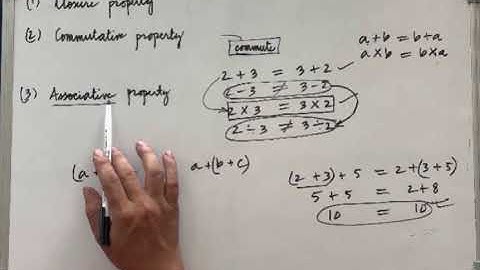 (1) Closure property
(2) Commutative property
commute
a+b = b+a
a×b = b×a
2+3 = 3+2 ✓
2-3 ≠ 3-2
2×3 = 3×2
2÷3 ≠ 3÷2
(3) Associative property
(a+
a+(b+c)
(2+3)+5 = 2+(3+5)
5+5 = 2+8
10 = 10 ✓